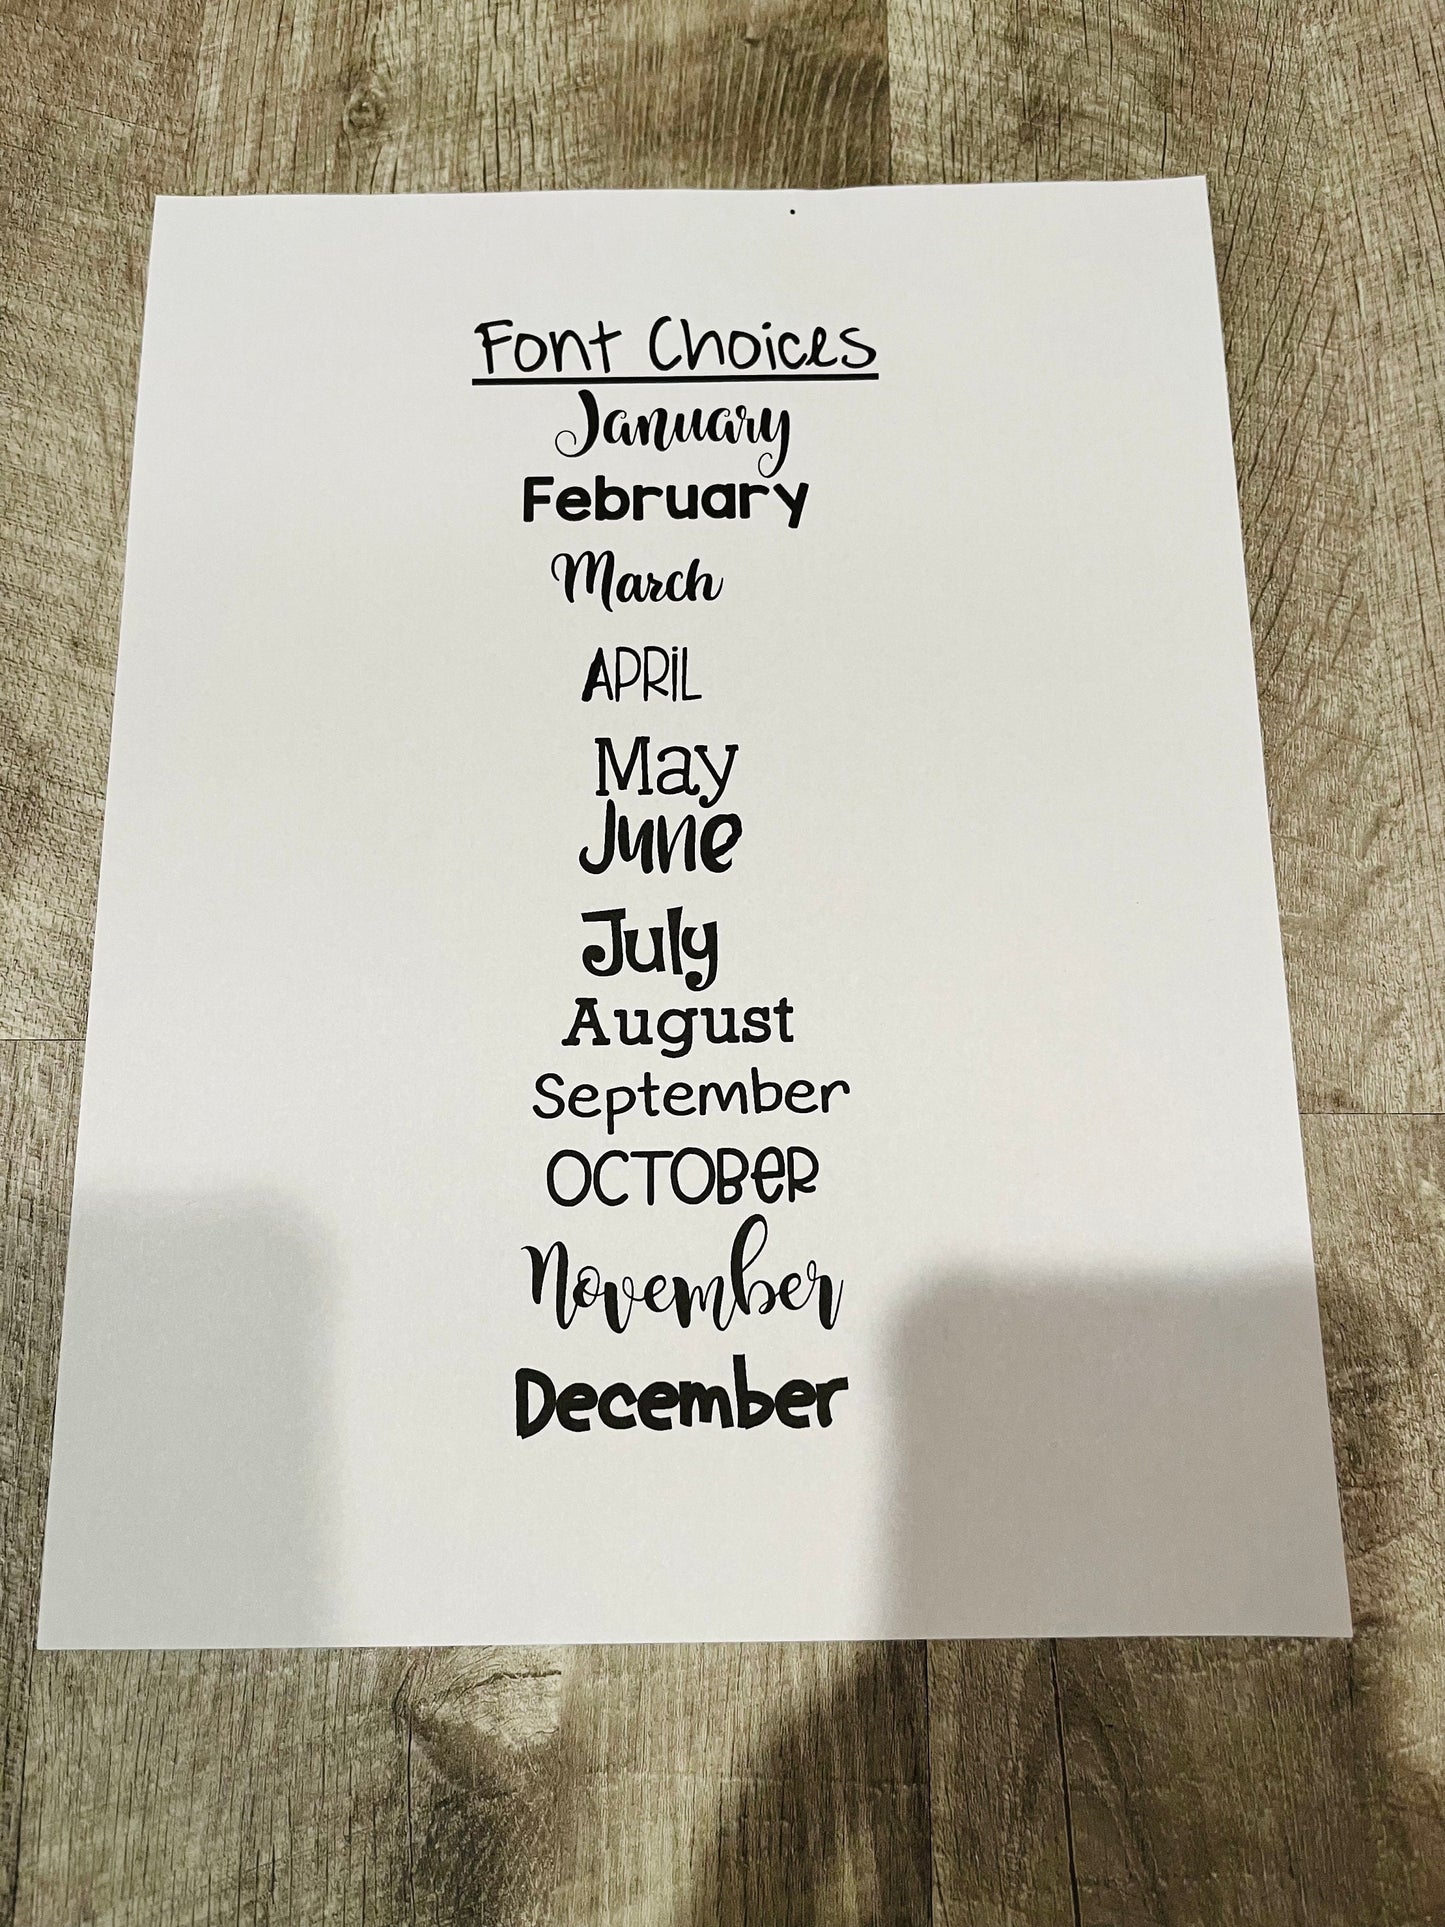 Font Choices
January
February
March
APRiL
May
June
July
August
September
OCTOBeR
November
December